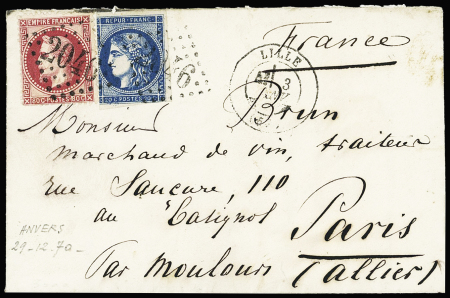 EMPIRE FRANÇAIS
80 CENTIMES 80
REPUB. FRANC.
20 C. POSTES 20 C.
204
6
LILLE
3
France
Monsieur Brun
marchand de vin, traiteur
rue Saucure, 110
au Batignol Paris
ANVERS
29-12-70
Par Moulours (allier)